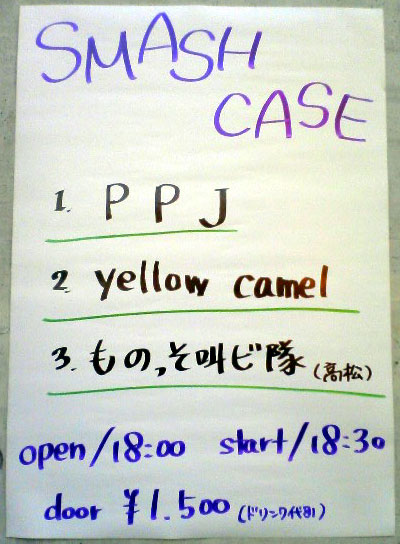 SMASH
CASE
1. PPJ
2. yellow camel
3. もの,そ叫ビ隊 (高松)
open/18:00 start/18:30
door ¥1.500 (ドリンク代別)